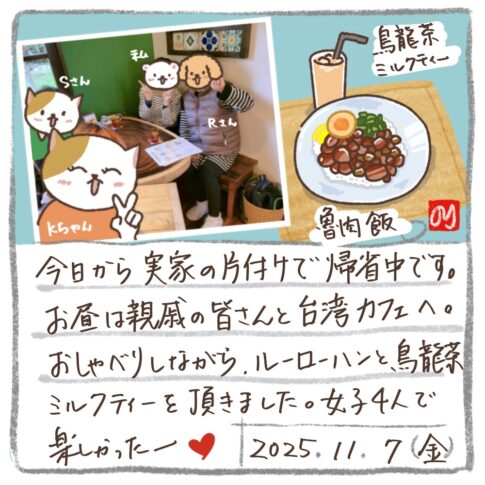 Sさん
私
Rさん
Kちゃん
烏龍茶
ミルクティー
魯肉飯
今日から実家の片付けで帰省中です。
お昼は親戚の皆さんと台湾カフェへ。
おしゃべりしながら、ルーローハンと烏龍茶
ミルクティーを頂きました。女子4人で
楽しかったー♥
2025.11.7(金)